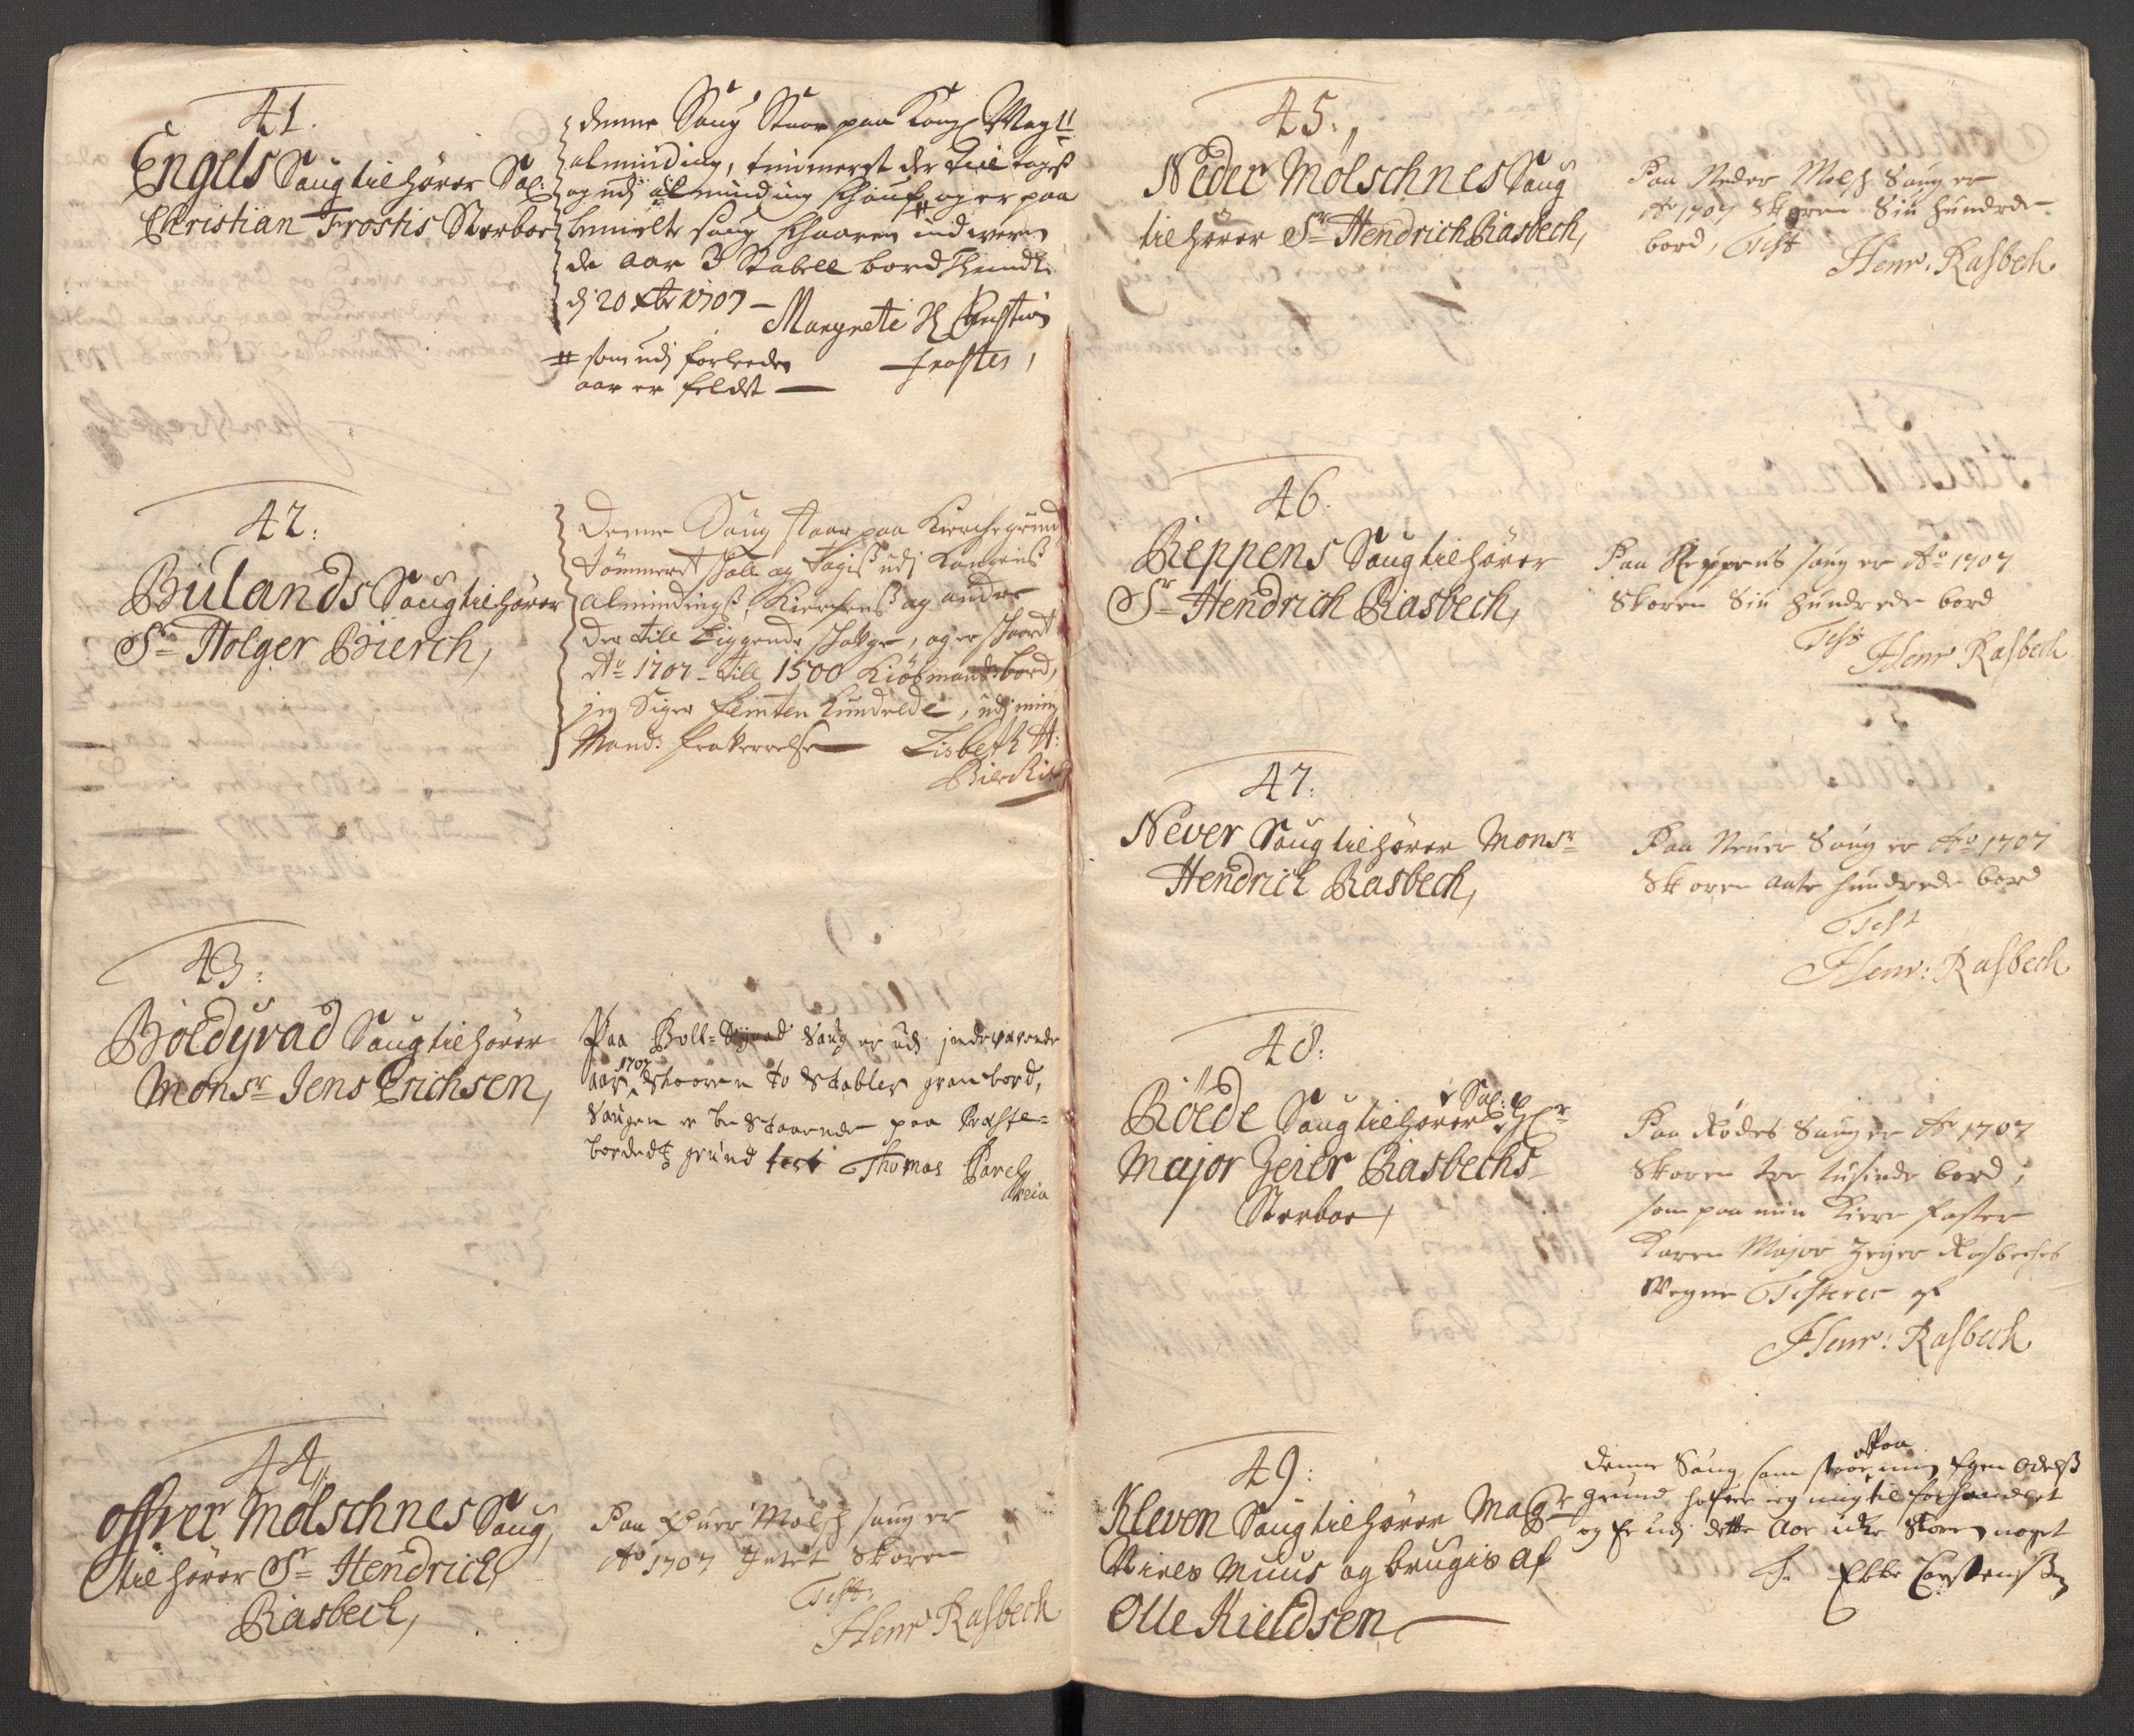 41.
Engels Saug tilhører Sal:
Christian Frostis Sterboe
denne Saug Staar paa Kong Mayt:
alminding, timmerst der till tages
og udj alminding schauf # og er paa
bemelte saug schaaren indweren
de aar 3 Stabell bord Thrundh:
d 20 xbr 1707 —
Margrete Sl Christian
Frostes,
# som udj forleeden
aar er feldet —
42:
Bulands Saug tilhører
Sr Holger Bierch,
Denne Saug staar paa Kierche grund
tømmeret schall og tagis udj Kongens
almindings, Kierchens og andre
der till liggende schoge, og er schaaret
Ao 1707 - till 1500 Kiøbmands bord,
jeg Siger femten hundrede, udj min
Mands fraverelse — Lisbeth H:
Bierchis
43:
Böldyrad Saug tilhører
Monsr Jens Erichsen,
Paa Boll= Saug er udj indeverende
aar 1707 skooren to stabler granbord,
Saugen er bestaaende paa Preste=
bordedtz grund test Thomas
44
offver Mölschnes Saug,
tilhører Sr Hendrich
Rasbech,
Paa Øuer Mölsch saug er
Ao 1707 Intet Skoren
Test:
Henr Rasbech
45:
Neder Mölschnes Saug
tilhører Sr Hendrich Rasbech,
Paa Neder Molsch Saug er
Ao 1707 Skoren Siu hundrede
bord, Test Henr: Rasbech
46:
Reppens Saug tilhører
Sr Hendrich Rasbech,
Paa Reppens saug er Ao 1707
Skoren Siu hundrede bord
Test Henr Rasbech
47:
Never Saug tilhører Monsr
Hendrich Rasbech,
Paa Neuer Saug er Ao 1707
Skoren aate hundrede bord
Test
Henr: Rasbech
48:
Röede Saug tilhører Sal: Hr
Major Zeier Rasbechs
Sterboe,
Paa Rødes Saug er Ao 1707
Skoren tre tusinde bord,
som paa min Kiere faster
Karen Major Zeyer Rasbeches
Wegne Testeres af
Henr: Rasbech
49:
Kleven Saug tilhører Magr
Niels Muus og brugis af
Olle Kieldsen
denne Saug, som staar paa min Egen odels
grund hafver ieg mig tilforhandlet
og er udj dette Aar icke skoren noget
T. Ebbe Carstensen